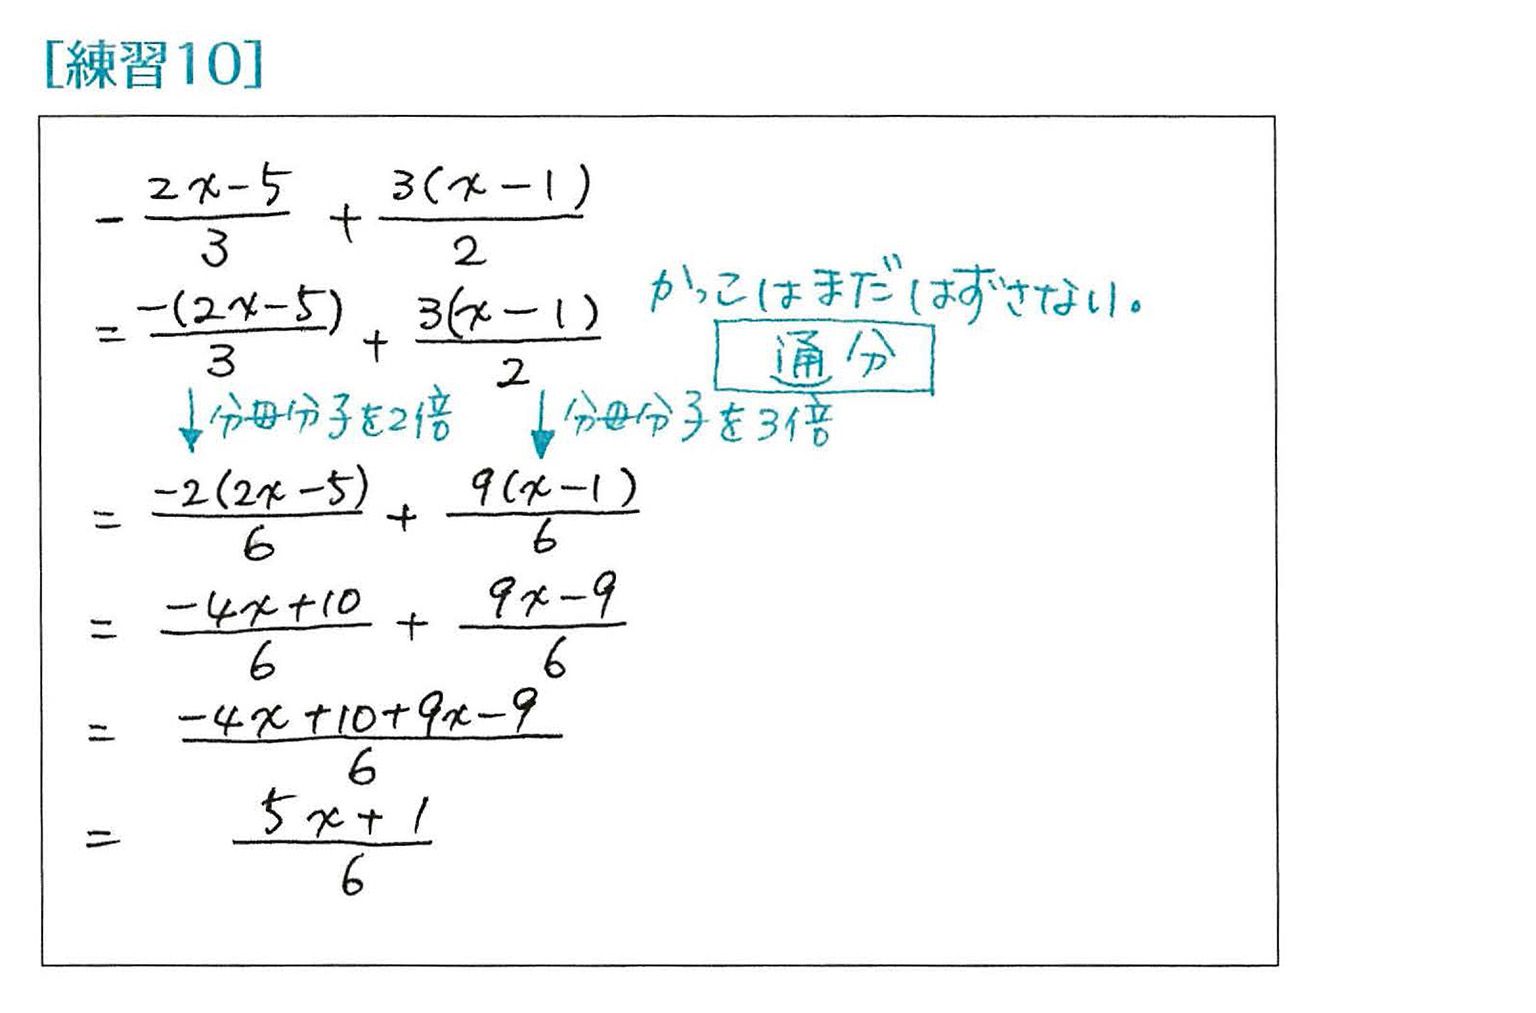 [練習10]
- (2x-5)/3 + 3(x-1)/2
= -(2x-5)/3 + 3(x-1)/2 かっこはまだはずさない。
通分
↓分母分子を2倍 ↓分母分子を3倍
= -2(2x-5)/6 + 9(x-1)/6
= (-4x+10)/6 + (9x-9)/6
= (-4x+10+9x-9)/6
= (5x+1)/6